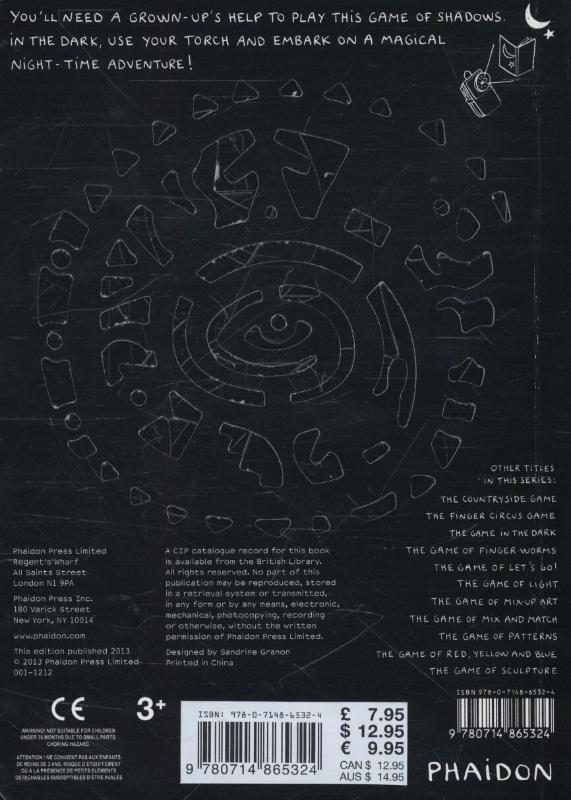 YOU'LL NEED A GROWN-UP'S HELP TO PLAY THIS GAME OF SHADOWS.
IN THE DARK, USE YOUR TORCH AND EMBARK ON A MAGICAL
NIGHT-TIME ADVENTURE!
OTHER TITLES
IN THIS SERIES:
THE COUNTRYSIDE GAME
THE FINGER CIRCUS GAME
THE GAME IN THE DARK
THE GAME OF FINGER WORMS
THE GAME OF LET'S GO!
THE GAME OF LIGHT
THE GAME OF MIX-UP ART
THE GAME OF MIX AND MATCH
THE GAME OF PATTERNS
THE GAME OF RED, YELLOW AND BLUE
THE GAME OF SCULPTURE
Phaidon Press Limited
Regent's Wharf
All Saints Street
London N1 9PA
Phaidon Press Inc.
180 Varick Street
New York, NY 10014
www.phaidon.com
This edition published 2013
© 2013 Phaidon Press Limited
001-1212
A CIP catalogue record for this book
is available from the British Library.
All rights reserved. No part of this
publication may be reproduced, stored
in a retrieval system or transmitted,
in any form or by any means, electronic,
mechanical, photocopying, recording
or otherwise, without the written
permission of Phaidon Press Limited.
Designed by Sandrine Granon
Printed in China
CE
3+
WARNING! NOT SUITABLE FOR CHILDREN
UNDER 36 MONTHS DUE TO SMALL PARTS.
CHOKING HAZARD.
ATTENTION ! NE CONVIENT PAS AUX ENFANTS
DE MOINS DE 3 ANS. RISQUE D'ETOUFFEMENT
DU A LA PRÉSENCE DE PETITS ELEMENTS
DETACHABLES SUSCEPTIBLES D'ÊTRE AVALES
ISBN: 978-0-7148-6532-4
9 780714 865324
£ 7.95
$ 12.95
€ 9.95
CAN $ 12.95
AUS $ 14.95
ISBN 978-0-7148-6532-4
9 780714 865324
PHAIDON